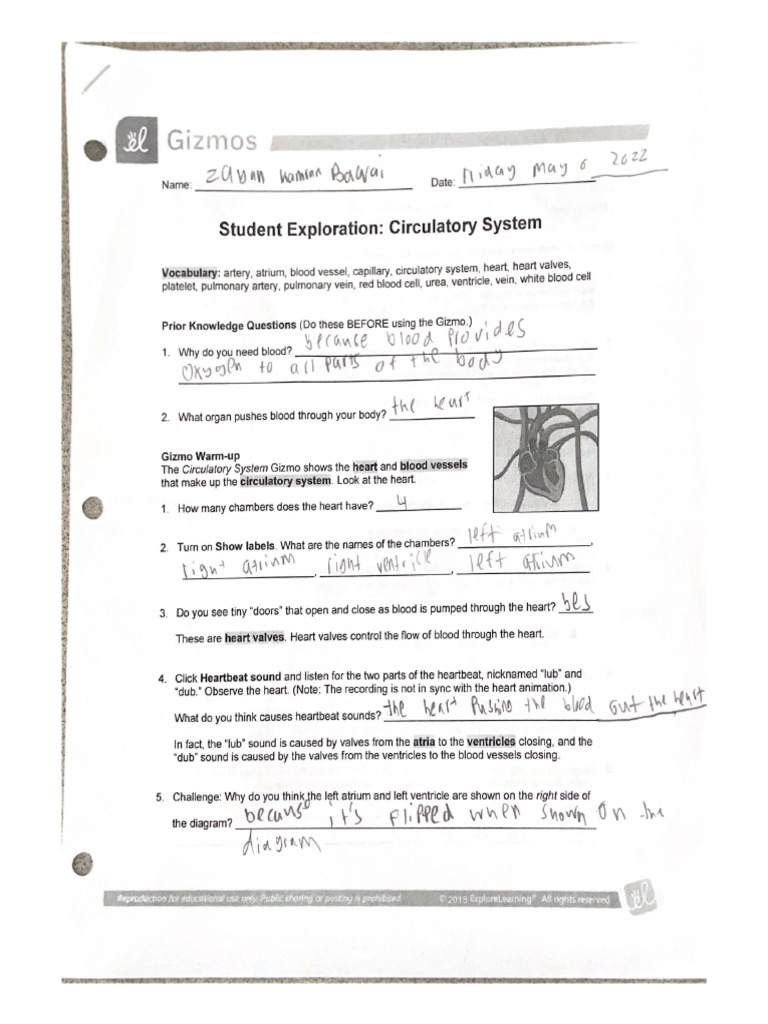 el Gizmos
Name: Zayan Kamran Bawai Date: Friday May 6 2022
Student Exploration: Circulatory System
Vocabulary: artery, atrium, blood vessel, capillary, circulatory system, heart, heart valves,
platelet, pulmonary artery, pulmonary vein, red blood cell, urea, ventricle, vein, white blood cell
Prior Knowledge Questions (Do these BEFORE using the Gizmo.)
1. Why do you need blood? because blood provides
oxygen to all parts of the body
2. What organ pushes blood through your body? the heart
Gizmo Warm-up
The Circulatory System Gizmo shows the heart and blood vessels
that make up the circulatory system. Look at the heart.
1. How many chambers does the heart have? 4
2. Turn on Show labels. What are the names of the chambers? left atrium,
right atrium, right ventricle, left atrium
3. Do you see tiny "doors" that open and close as blood is pumped through the heart? yes
These are heart valves. Heart valves control the flow of blood through the heart.
4. Click Heartbeat sound and listen for the two parts of the heartbeat, nicknamed "lub" and
"dub." Observe the heart. (Note: The recording is not in sync with the heart animation.)
What do you think causes heartbeat sounds? the heart pushing the blood out the heart
In fact, the "lub" sound is caused by valves from the atria to the ventricles closing, and the
"dub" sound is caused by the valves from the ventricles to the blood vessels closing.
5. Challenge: Why do you think the left atrium and left ventricle are shown on the right side of
the diagram? because it's flipped when shown on the
diagram
Reproduction for educational use only. Public sharing or posting is prohibited © 2018 ExploreLearning® All rights reserved el